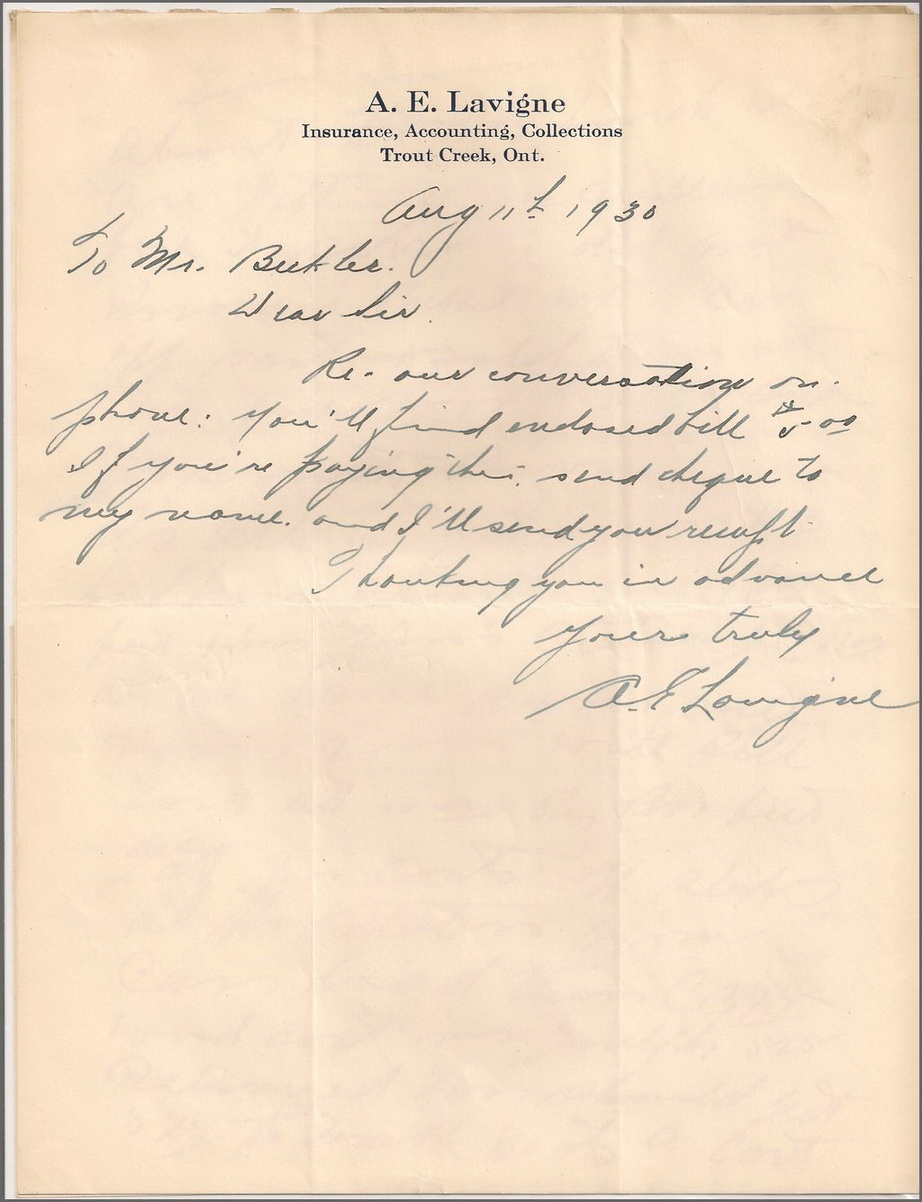 A. E. Lavigne
Insurance, Accounting, Collections
Trout Creek, Ont.
Aug 11th 1930
To Mr.
Dear Sir.
Re- our conversation on.
phone: You'll find enclosed bill $5.00
If you're paying this, send cheque to
my name. and I'll send you
Thanking you in advance
Yours truly
A. E. Lavigne